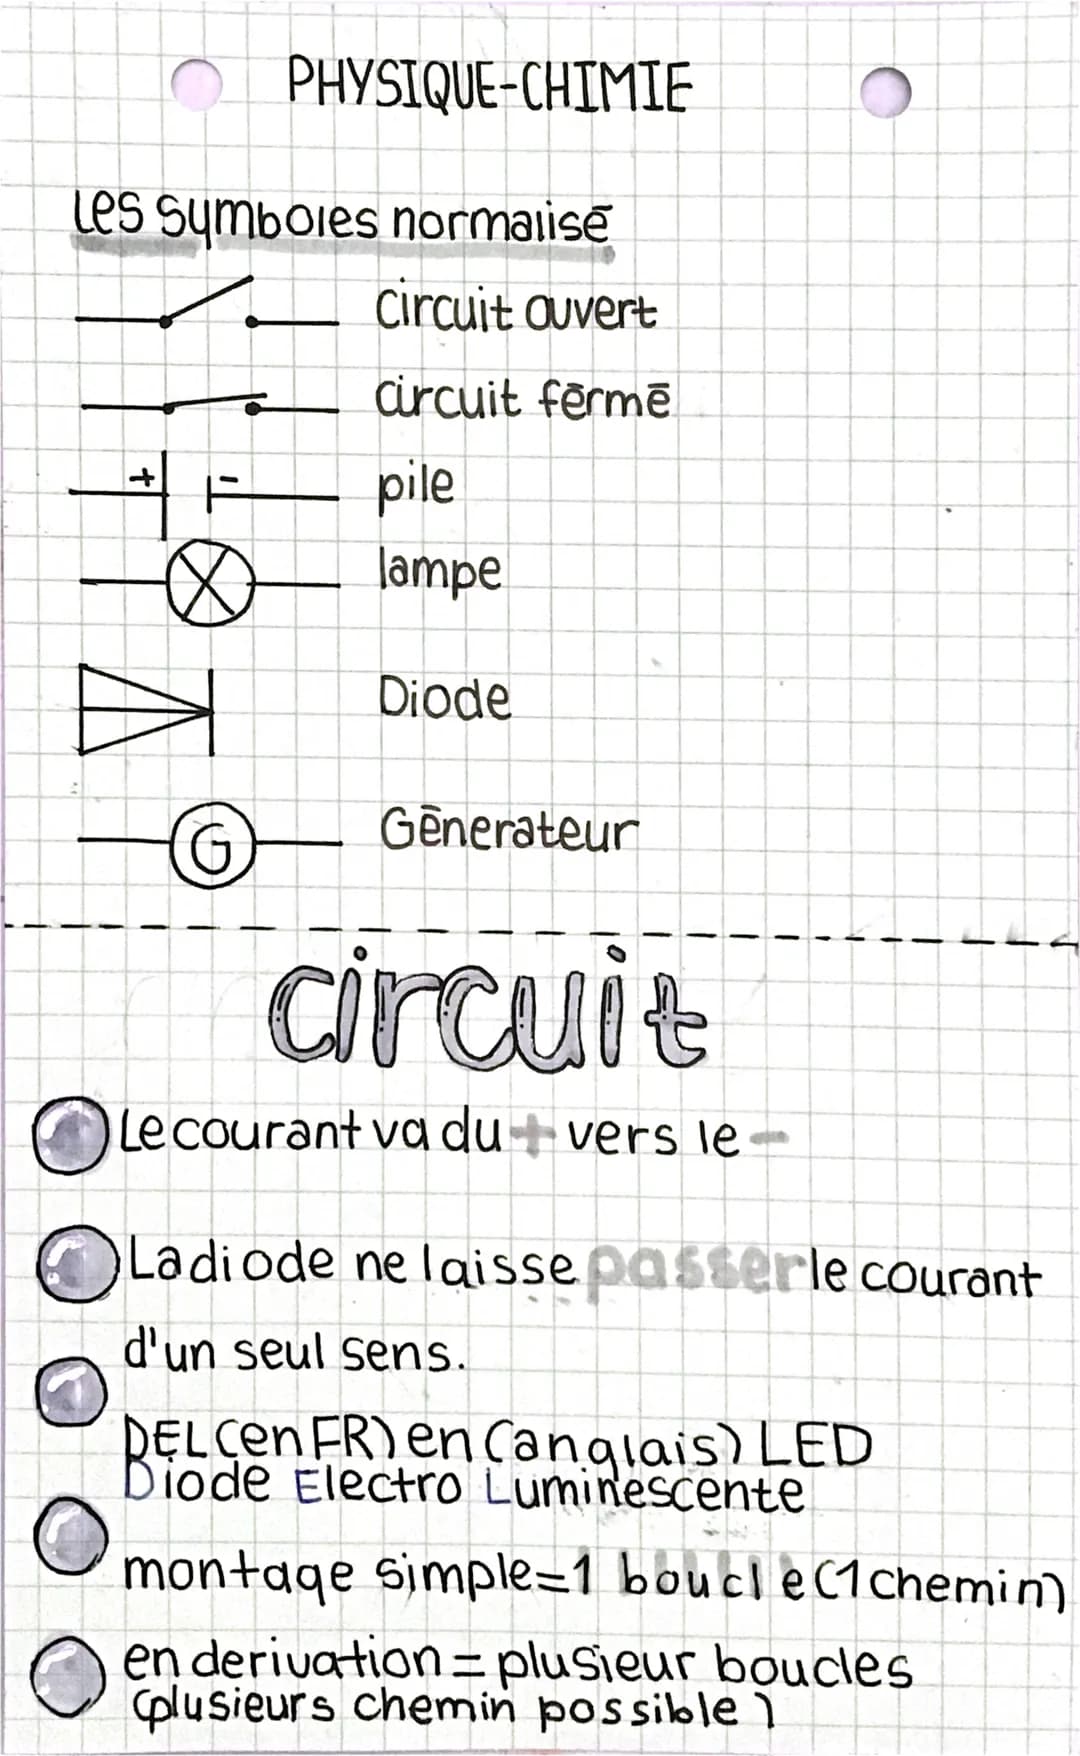 PHYSIQUE-CHIMIE
Les symboles normalisé
circuit ouvert
circuit fērmē
+ -
pile
lampe
Diode
G
Gēnerateur
circuit
Le courant va du + vers le -
La diode ne laisse passer le courant
d'un seul sens.
DEL (en FR) en (anglais) LED
Diode Electro Luminescente
montage simple=1 boucle (1 chemin)
en derivation = plusieur boucles
(plusieurs chemin possible)